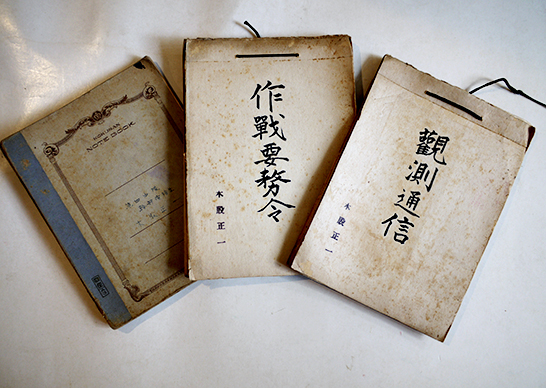 NOTE BOOK
作戰要務令
木股正一
觀測通信
木股正一